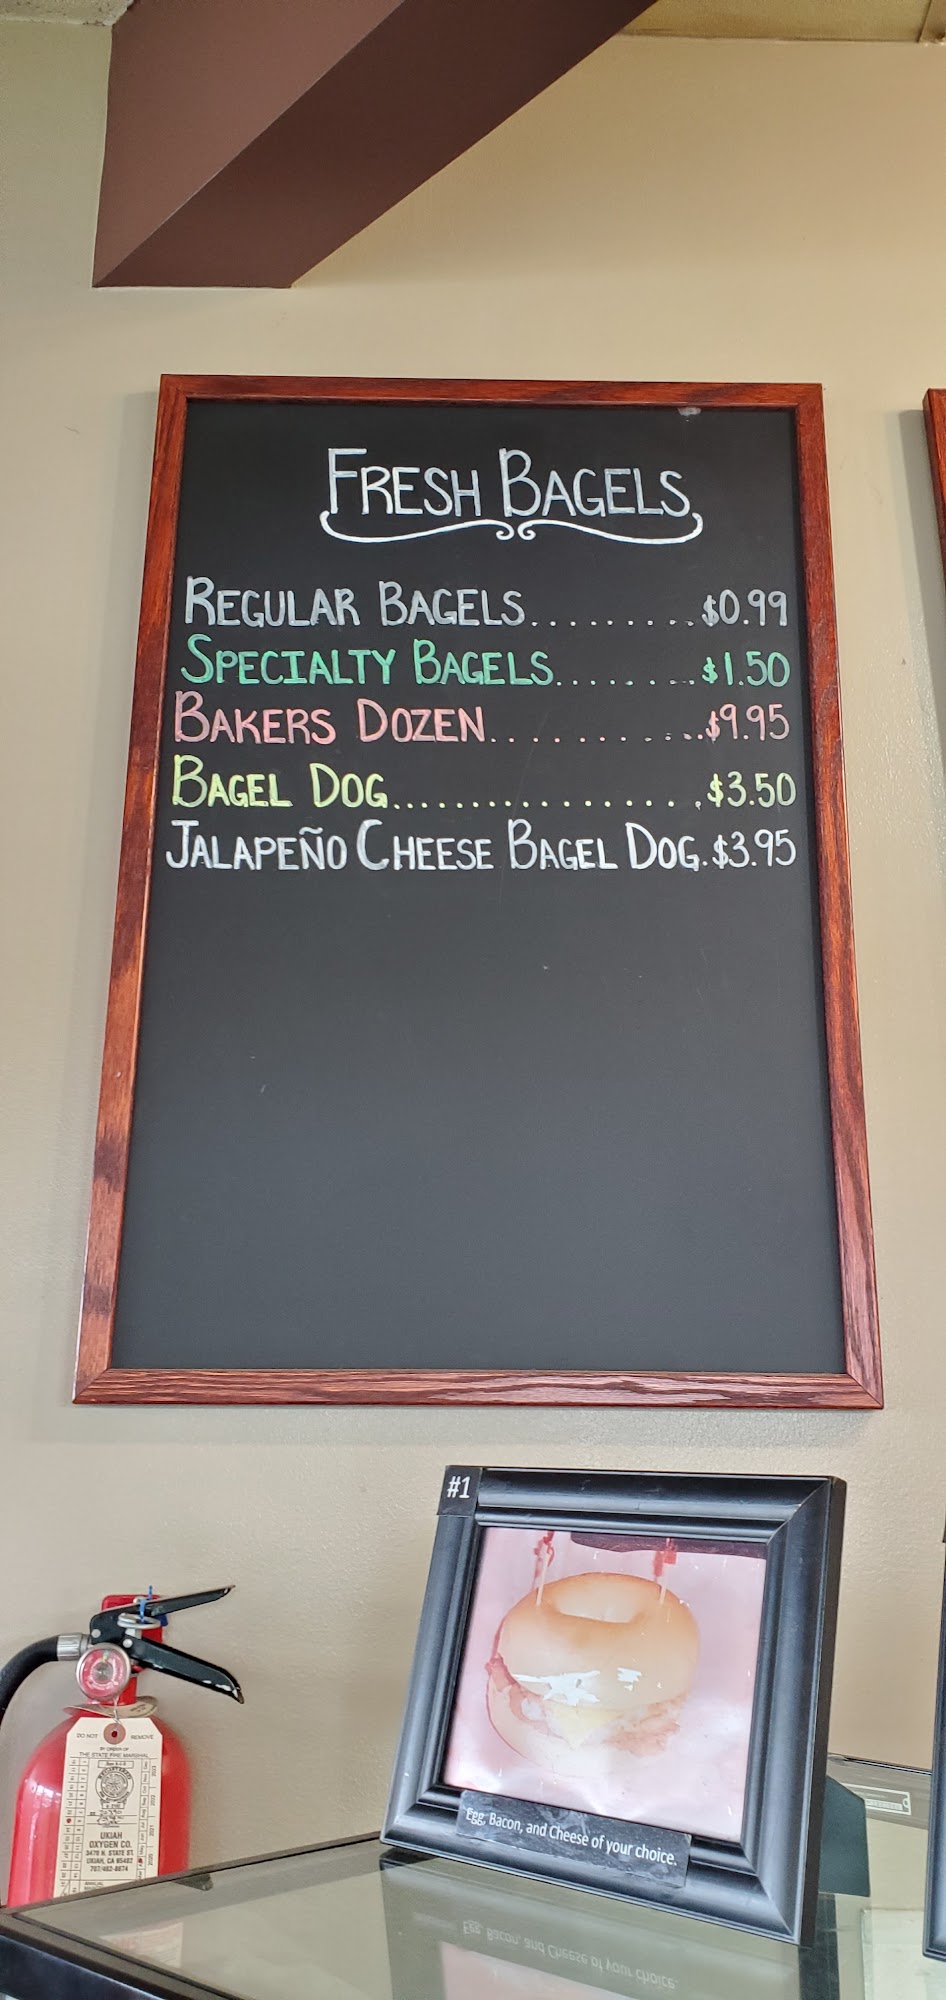 FRESH BAGELS
REGULAR BAGELS.........$0.99
SPECIALTY BAGELS........$1.50
BAKERS DOZEN...........$9.95
BAGEL DOG.................$3.50
JALAPEÑO CHEESE BAGEL DOG.$3.95
#1
Egg, Bacon, and Cheese of your choice.
DO NOT REMOVE
BY ORDER OF
THE STATE FIRE MARSHAL
UKIAH
OXYGEN CO.
3470 N. STATE ST.
UKIAH, CA 95482
707/462-8674